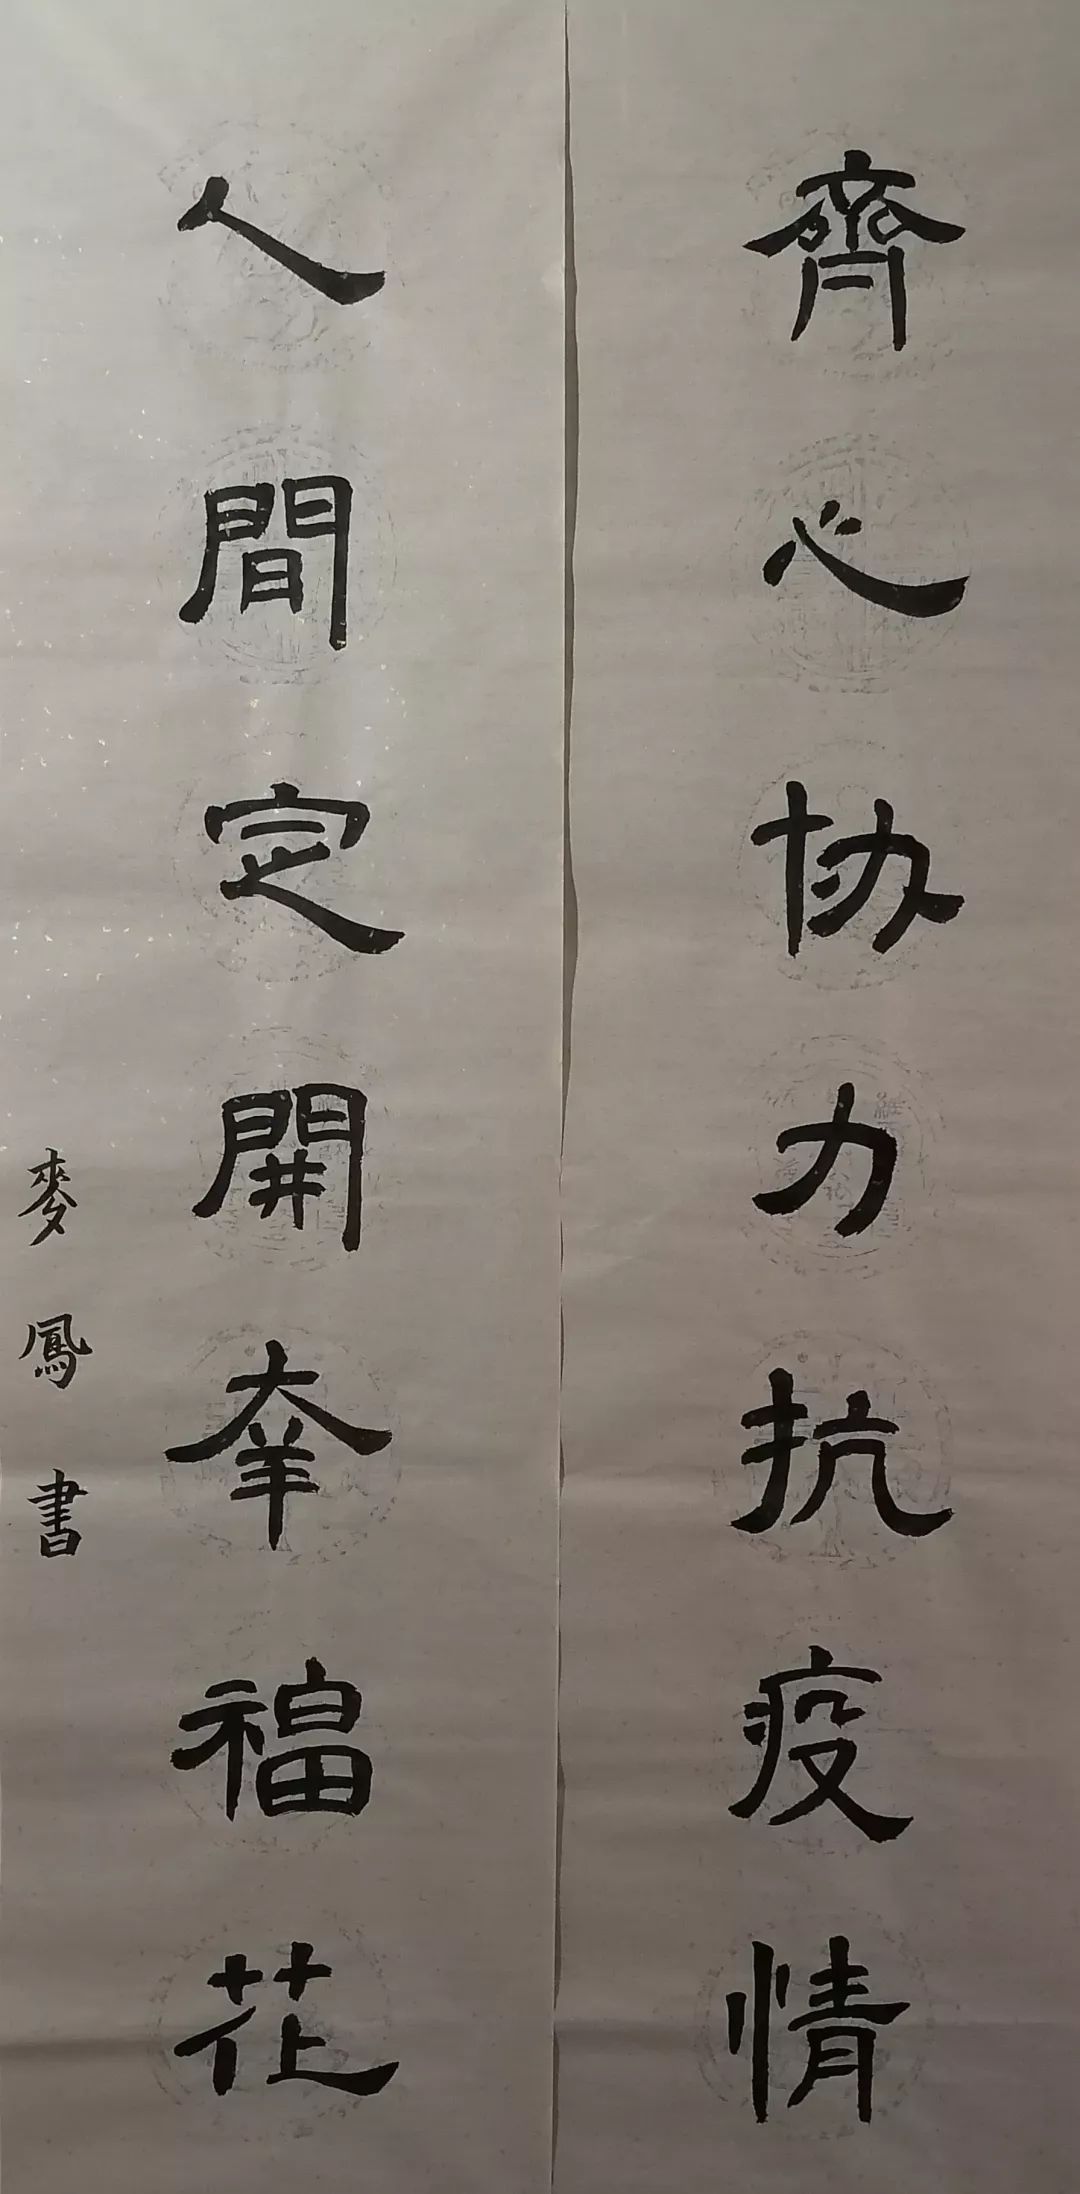 齊心协力抗疫情
人間定開幸福花
麥鳳書